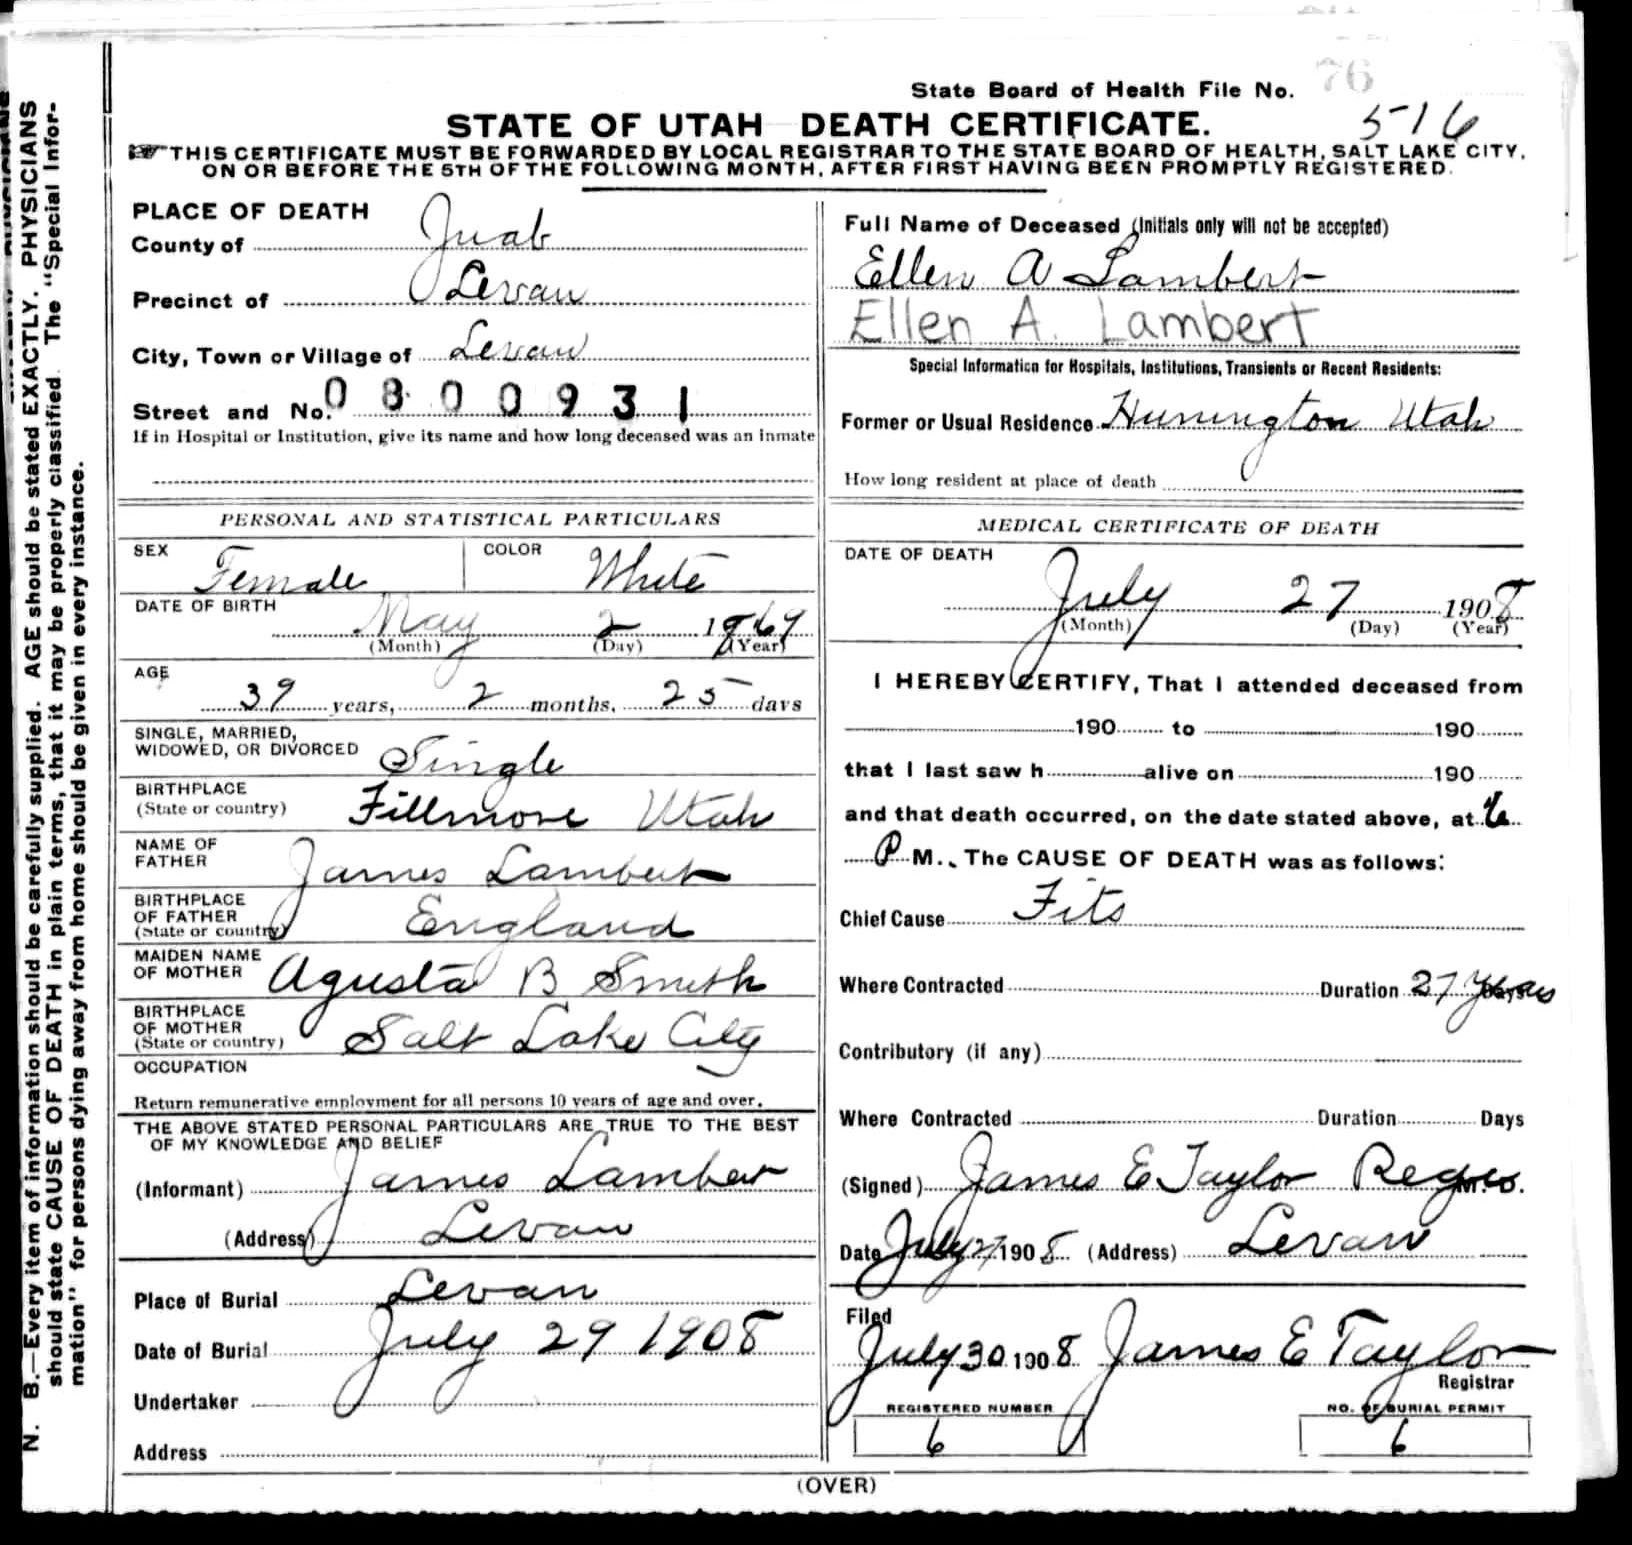 76
State Board of Health File No.
516
STATE OF UTAH DEATH CERTIFICATE.
THIS CERTIFICATE MUST BE FORWARDED BY LOCAL REGISTRAR TO THE STATE BOARD OF HEALTH, SALT LAKE CITY,
ON OR BEFORE THE 5TH OF THE FOLLOWING MONTH, AFTER FIRST HAVING BEEN PROMPTLY REGISTERED.
N. B.—Every item of information should be carefully supplied. AGE should be stated EXACTLY. PHYSICIANS
should state CAUSE OF DEATH in plain terms, that it may be properly classified. The "Special Infor-
mation" for persons dying away from home should be given in every instance.
PLACE OF DEATH
County of Juab
Precinct of Levan
City, Town or Village of Levan
Street and No. 0800931
If in Hospital or Institution, give its name and how long deceased was an inmate
Full Name of Deceased (Initials only will not be accepted)
Ellen A Lambert
Ellen A. Lambert
Special Information for Hospitals, Institutions, Transients or Recent Residents:
Former or Usual Residence Hunington Utah
How long resident at place of death
PERSONAL AND STATISTICAL PARTICULARS
SEX Female COLOR White
DATE OF BIRTH
May 2 1869
(Month) (Day) (Year)
AGE
39 years, 2 months, 25 days
SINGLE, MARRIED,
WIDOWED, OR DIVORCED Single
BIRTHPLACE
(State or country) Fillmore Utah
NAME OF
FATHER James Lambert
BIRTHPLACE
OF FATHER
(State or country) England
MAIDEN NAME
OF MOTHER Agusta B Smith
BIRTHPLACE
OF MOTHER
(State or country) Salt Lake City
OCCUPATION
Return remunerative employment for all persons 10 years of age and over.
THE ABOVE STATED PERSONAL PARTICULARS ARE TRUE TO THE BEST
OF MY KNOWLEDGE AND BELIEF
(Informant) James Lamber
(Address) Levan
Place of Burial Levan
Date of Burial July 29 1908
Undertaker
Address
MEDICAL CERTIFICATE OF DEATH
DATE OF DEATH
July 27 1908
(Month) (Day) (Year)
I HEREBY CERTIFY, That I attended deceased from
190 to 190
that I last saw h alive on 190
and that death occurred, on the date stated above, at 6
P M., The CAUSE OF DEATH was as follows:
Chief Cause Fits
Where Contracted Duration 27 Years
Contributory (if any)
Where Contracted Duration Days
(Signed) James E Taylor Regis M. D.
Date July 27 1908 (Address) Levan
Filed
July 30 1908 James E Taylor
Registrar
REGISTERED NUMBER NO. OF BURIAL PERMIT
6 6
(OVER)